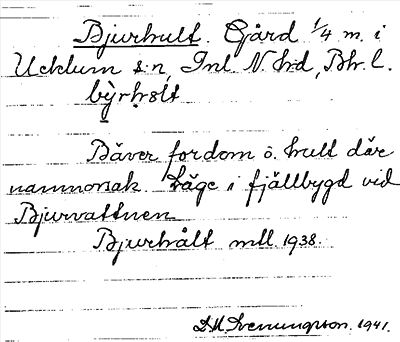 Bjurhult. Gård 1/4 m. i
Ucklum s:n, Inl. N. hd, Bh. l.
bỳrhɵlt
Bäver fordom o. hult där
namnorsak. Läge i fjällbygd vid
Bjurvattnen
Bjurhålt mtl 1938.
1941.